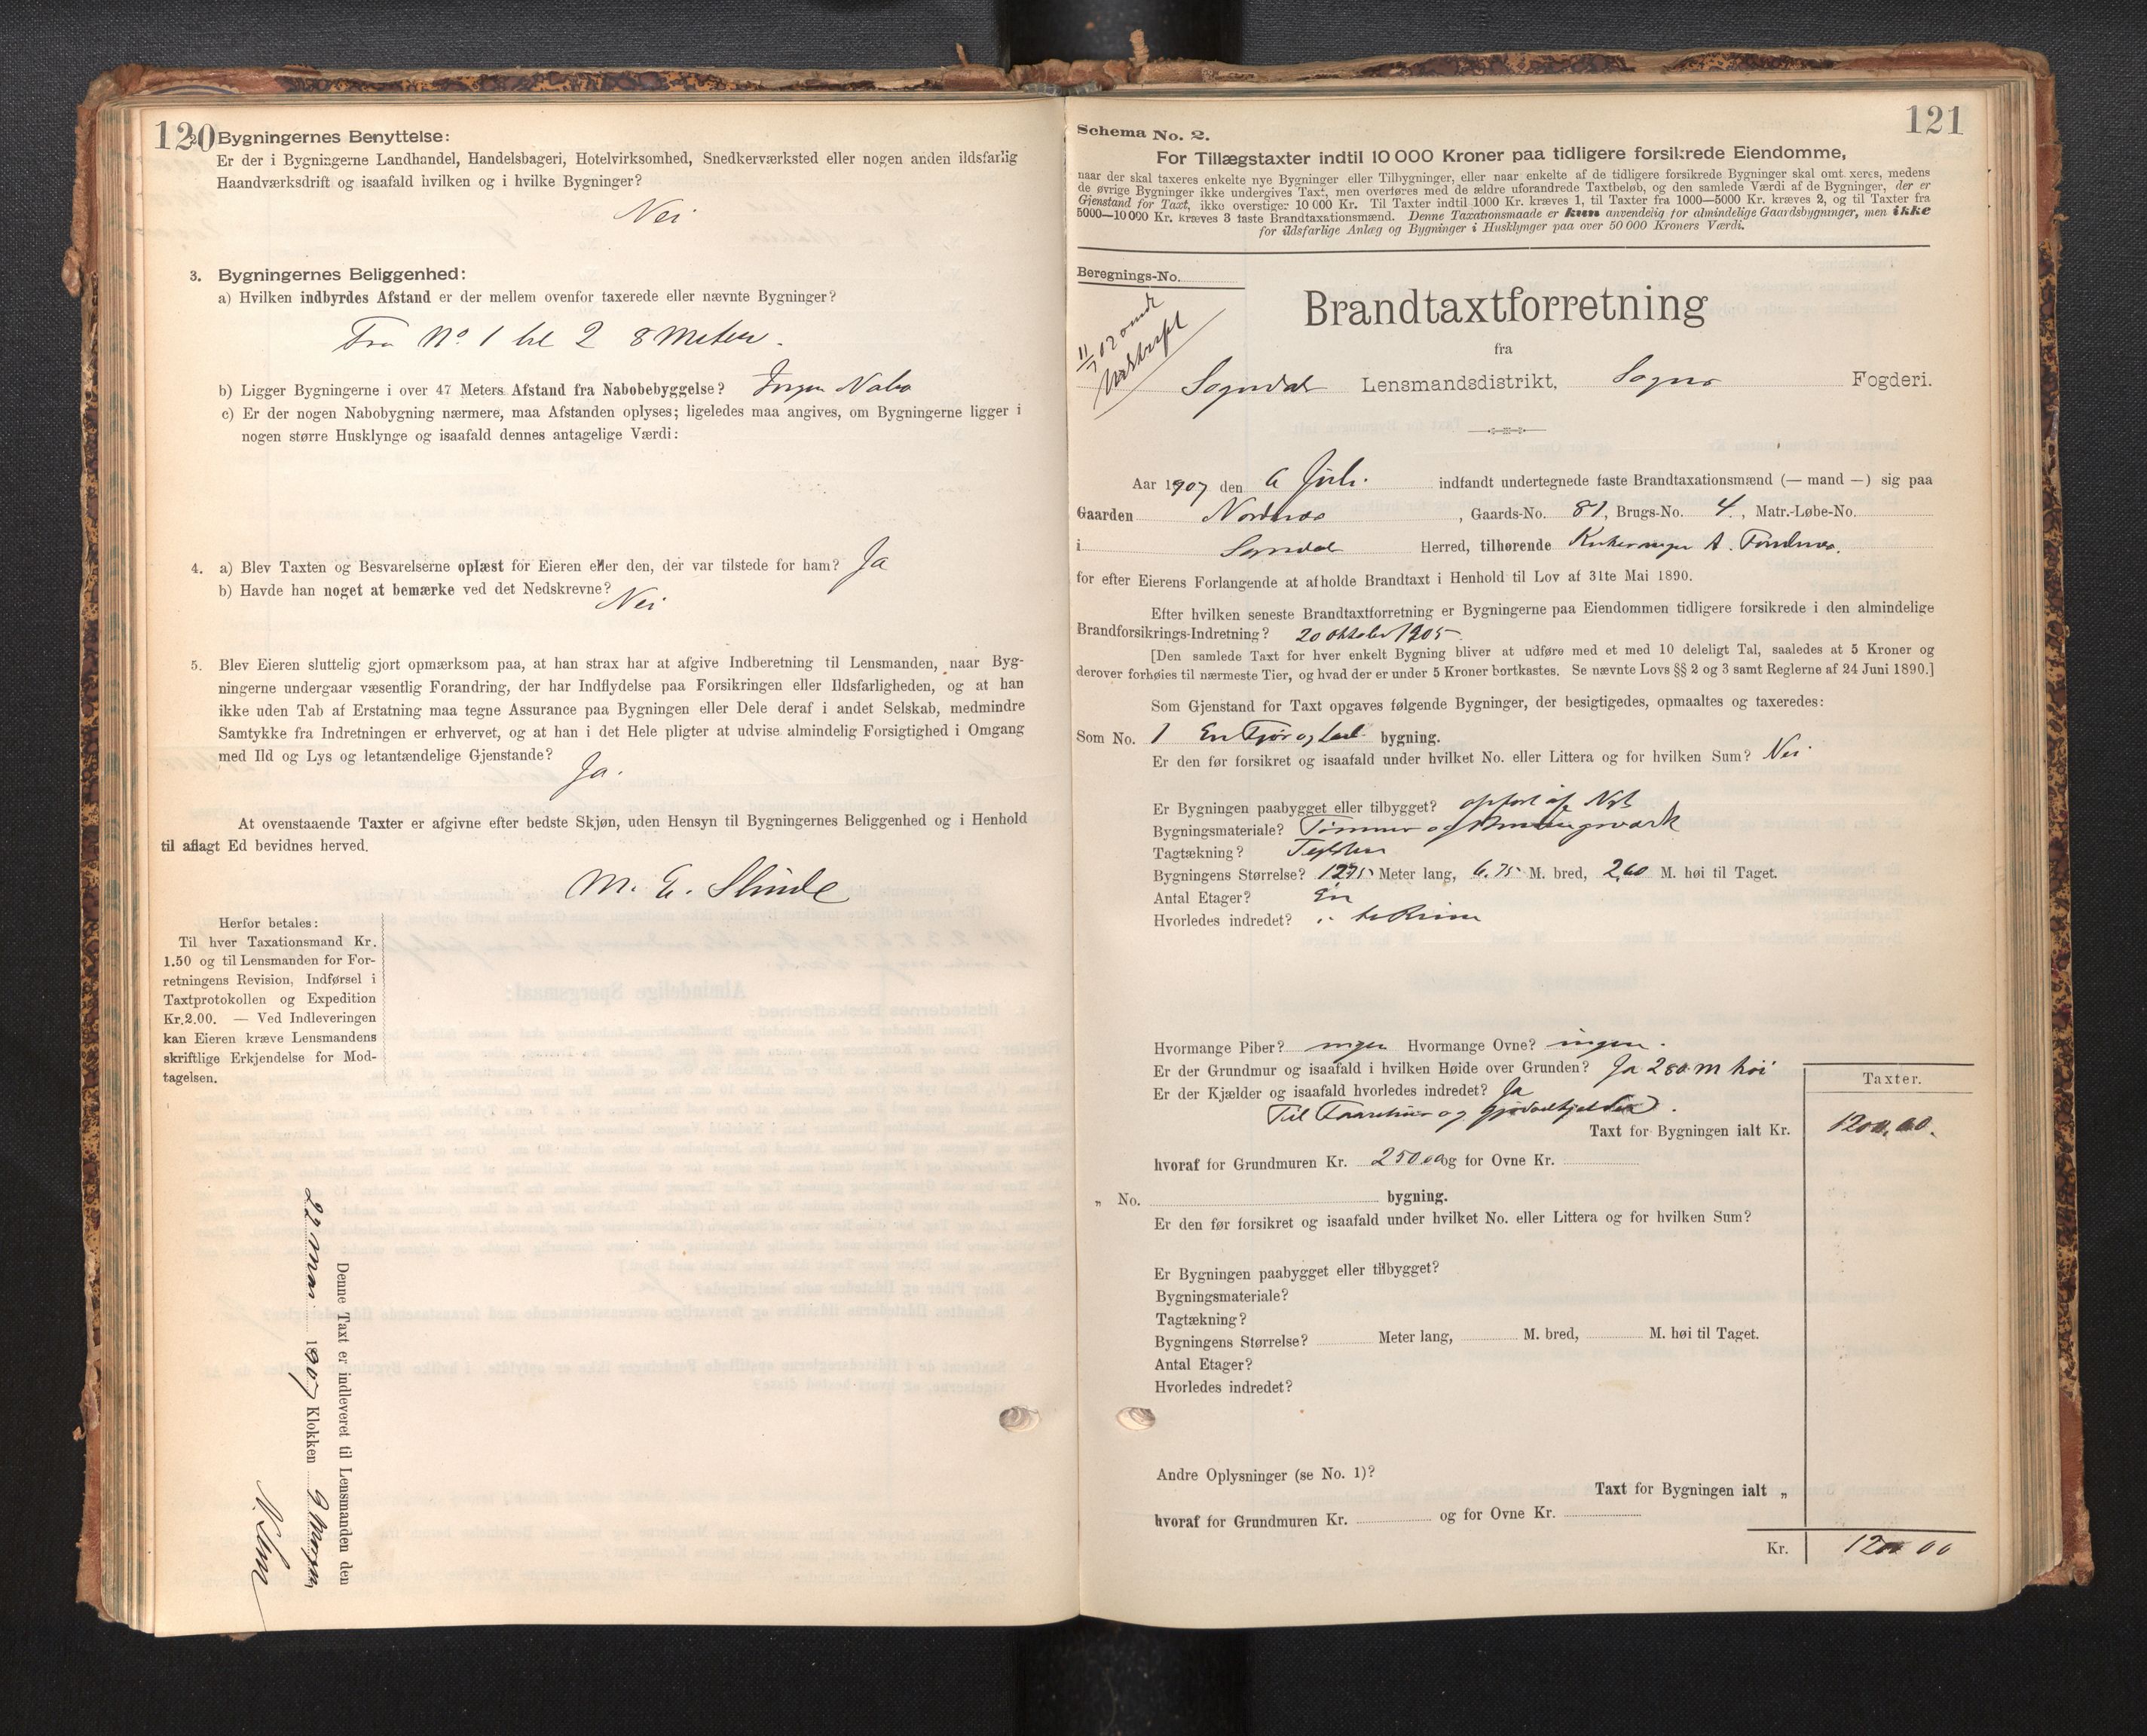 120
2. Bygningernes Benyttelse:
Er der i Bygningerne Landhandel, Handelsbageri, Hotelvirksomhed, Snedkerværksted eller nogen anden ildsfarlig
Haandværksdrift og isaafald hvilken og i hvilke Bygninger?
Nei
3. Bygningernes Beliggenhed:
a) Hvilken indbyrdes Afstand er der mellem ovenfor taxerede eller nævnte Bygninger?
Fra No 1 til 2 8 Meter.
b) Ligger Bygningerne i over 47 Meters Afstand fra Nabobebyggelse? Ingen Nabo
c) Er der nogen Nabobygning nærmere, maa Afstanden oplyses; ligeledes maa angives, om Bygningerne ligger i
nogen større Husklynge og isaafald dennes antagelige Værdi:
4. a) Blev Taxten og Besvarelserne oplæst for Eieren eller den, der var tilstede for ham? Ja
b) Havde han noget at bemærke ved det Nedskrevne? Nei
5. Blev Eieren sluttelig gjort opmærksom paa, at han strax har at afgive Indberetning til Lensmanden, naar Byg-
ningerne undergaar væsentlig Forandring, der har Indflydelse paa Forsikringen eller Ildsfarligheden, og at han
ikke uden Tab af Erstatning maa tegne Assurance paa Bygningen eller Dele deraf i andet Selskab, medmindre
Samtykke fra Indretningen er erhvervet, og at han i det Hele pligter at udvise almindelig Forsigtighed i Omgang
med Ild og Lys og letantændelige Gjenstande? Ja.
At ovenstaaende Taxter er afgivne efter bedste Skjøn, uden Hensyn til Bygningernes Beliggenhed og i Henhold
til aflagt Ed bevidnes herved.
M. E. Slinde
Herfor betales:
Til hver Taxationsmand Kr.
1.50 og til Lensmanden for For-
retningens Revision, Indførsel i
Taxtprotokollen og Expedition
Kr.2.00. — Ved Indleveringen
kan Eieren kræve Lensmandens
skriftlige Erkjendelse for Mod-
tagelsen.
Denne Taxt er indleveret til Lensmanden den
22 Mai 1907 Klokken 9 Morgen
121
Schema No. 2.
For Tillægstaxter indtil 10 000 Kroner paa tidligere forsikrede Eiendomme,
naar der skal taxeres enkelte nye Bygninger eller Tilbygninger, eller naar enkelte af de tidligere forsikrede Bygninger skal omtaxeres, medens
de øvrige Bygninger ikke undergives Taxt, men overføres med de ældre uforandrede Taxtbeløb, og den samlede Værdi af de Bygninger, der er
Gjenstand for Taxt, ikke overstiger 10 000 Kr. Til Taxter indtil 1000 Kr. kræves 1, til Taxter fra 1000—5000 Kr. kræves 2, og til Taxter fra
5000—10 000 Kr. kræves 3 faste Brandtaxationsmænd. Denne Taxationsmaade er kun anvendelig for almindelige Gaardsbygninger, men ikke
for ildsfarlige Anlæg og Bygninger i Husklynger paa over 50 000 Kroners Værdi.
Beregnings-No.
Brandtaxtforretning
fra
Sogndal Lensmandsdistrikt, Sogns Fogderi.
Aar 1907 den 6 Juli. indfandt undertegnede faste Brandtaxationsmænd (— mand —) sig paa
Gaarden Nordnæs, Gaards-No. 81, Brugs-No. 4, Matr.-Løbe-No.
i Sogndal Herred, tilhørende Kirkesanger A.
for efter Eierens Forlangende at afholde Brandtaxt i Henhold til Lov af 31te Mai 1890.
Efter hvilken seneste Brandtaxtforretning er Bygningerne paa Eiendommen tidligere forsikrede i den almindelige
Brandforsikrings-Indretning? 20 oktober 1905
[Den samlede Taxt for hver enkelt Bygning bliver at udføre med et med 10 deleligt Tal, saaledes at 5 Kroner og
derover forhøies til nærmeste Tier, og hvad der er under 5 Kroner bortkastes. Se nævnte Lovs §§ 2 og 3 samt Reglerne af 24 Juni 1890.]
Som Gjenstand for Taxt opgaves følgende Bygninger, der besigtigedes, opmaaltes og taxeredes:
Som No. 1 En Fjør og Lad bygning.
Er den før forsikret og isaafald under hvilket No. eller Littera og for hvilken Sum? Nei
Er Bygningen paabygget eller tilbygget? opført af Nyt
Bygningsmateriale? Tømmer og Bindingsværk
Tagtækning? Teglsten
Bygningens Størrelse? 12.75 Meter lang, 6.75 M. bred, 2,60 M. høi til Taget.
Antal Etager? En
Hvorledes indredet? to Rum
Hvormange Piber? ingen Hvormange Ovne? ingen.
Er der Grundmur og isaafald i hvilken Høide over Grunden? Ja 2 80 M høi
Er der Kjælder og isaafald hvorledes indredet? Ja
Til Faarehus og Gjødselkjelder.
Taxter.
Taxt for Bygningen ialt Kr. 1200.00.
hvoraf for Grundmuren Kr. 250.00 og for Ovne Kr.
„ No. bygning.
Er den før forsikret og isaafald under hvilket No. eller Littera og for hvilken Sum?
Er Bygningen paabygget eller tilbygget?
Bygningsmateriale?
Tagtækning?
Bygningens Størrelse? Meter lang, M. bred, M. høi til Taget.
Antal Etager?
Hvorledes indredet?
Andre Oplysninger (se No. 1)?
Taxt for Bygningen ialt „
hvoraf for Grundmuren Kr. og for Ovne Kr.
Kr. 1200 00